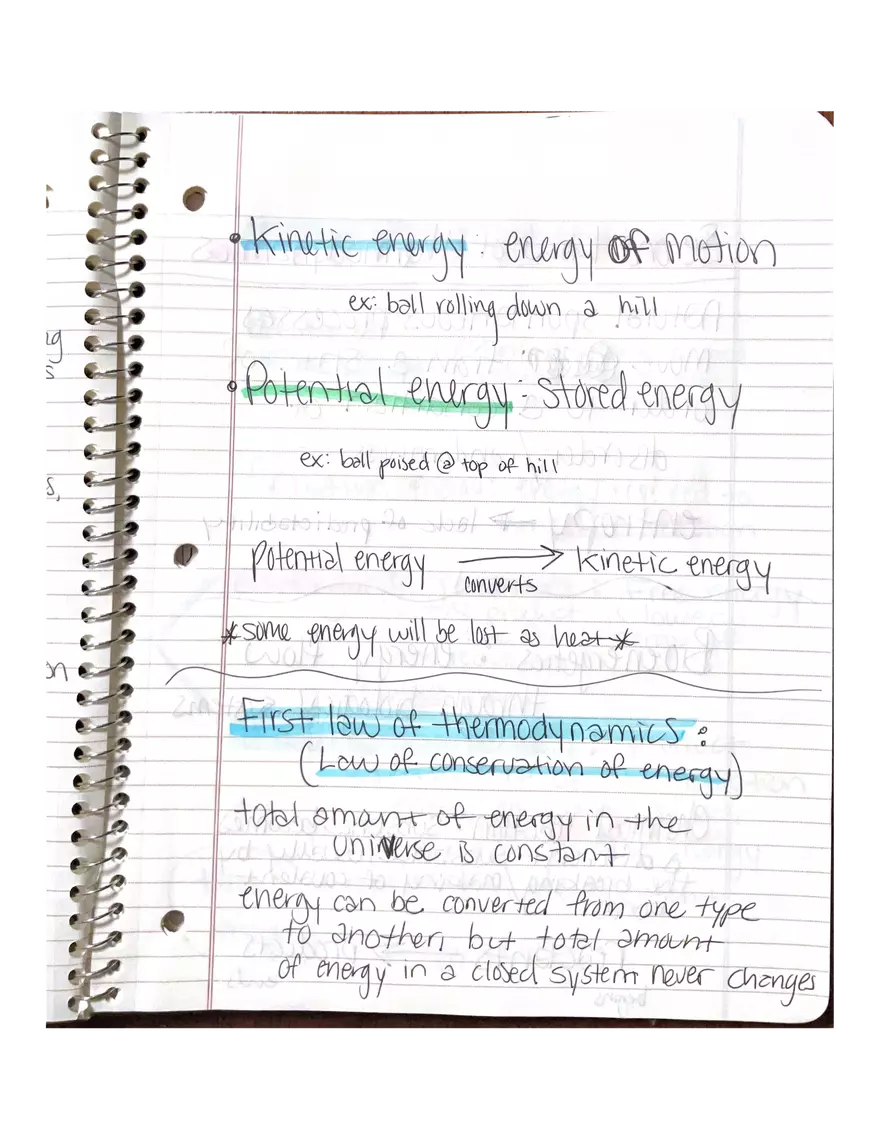 • Kinetic energy: energy of motion
ex: ball rolling down a hill
• Potential energy: stored energy
ex: ball poised @ top of hill
potential energy → kinetic energy
converts
*some energy will be lost as heat*
First law of thermodynamics:
(Law of conservation of energy)
total amant of energy in the
universe is constant
energy can be converted from one type
to another, but total amount
of energy in a closed system never changes